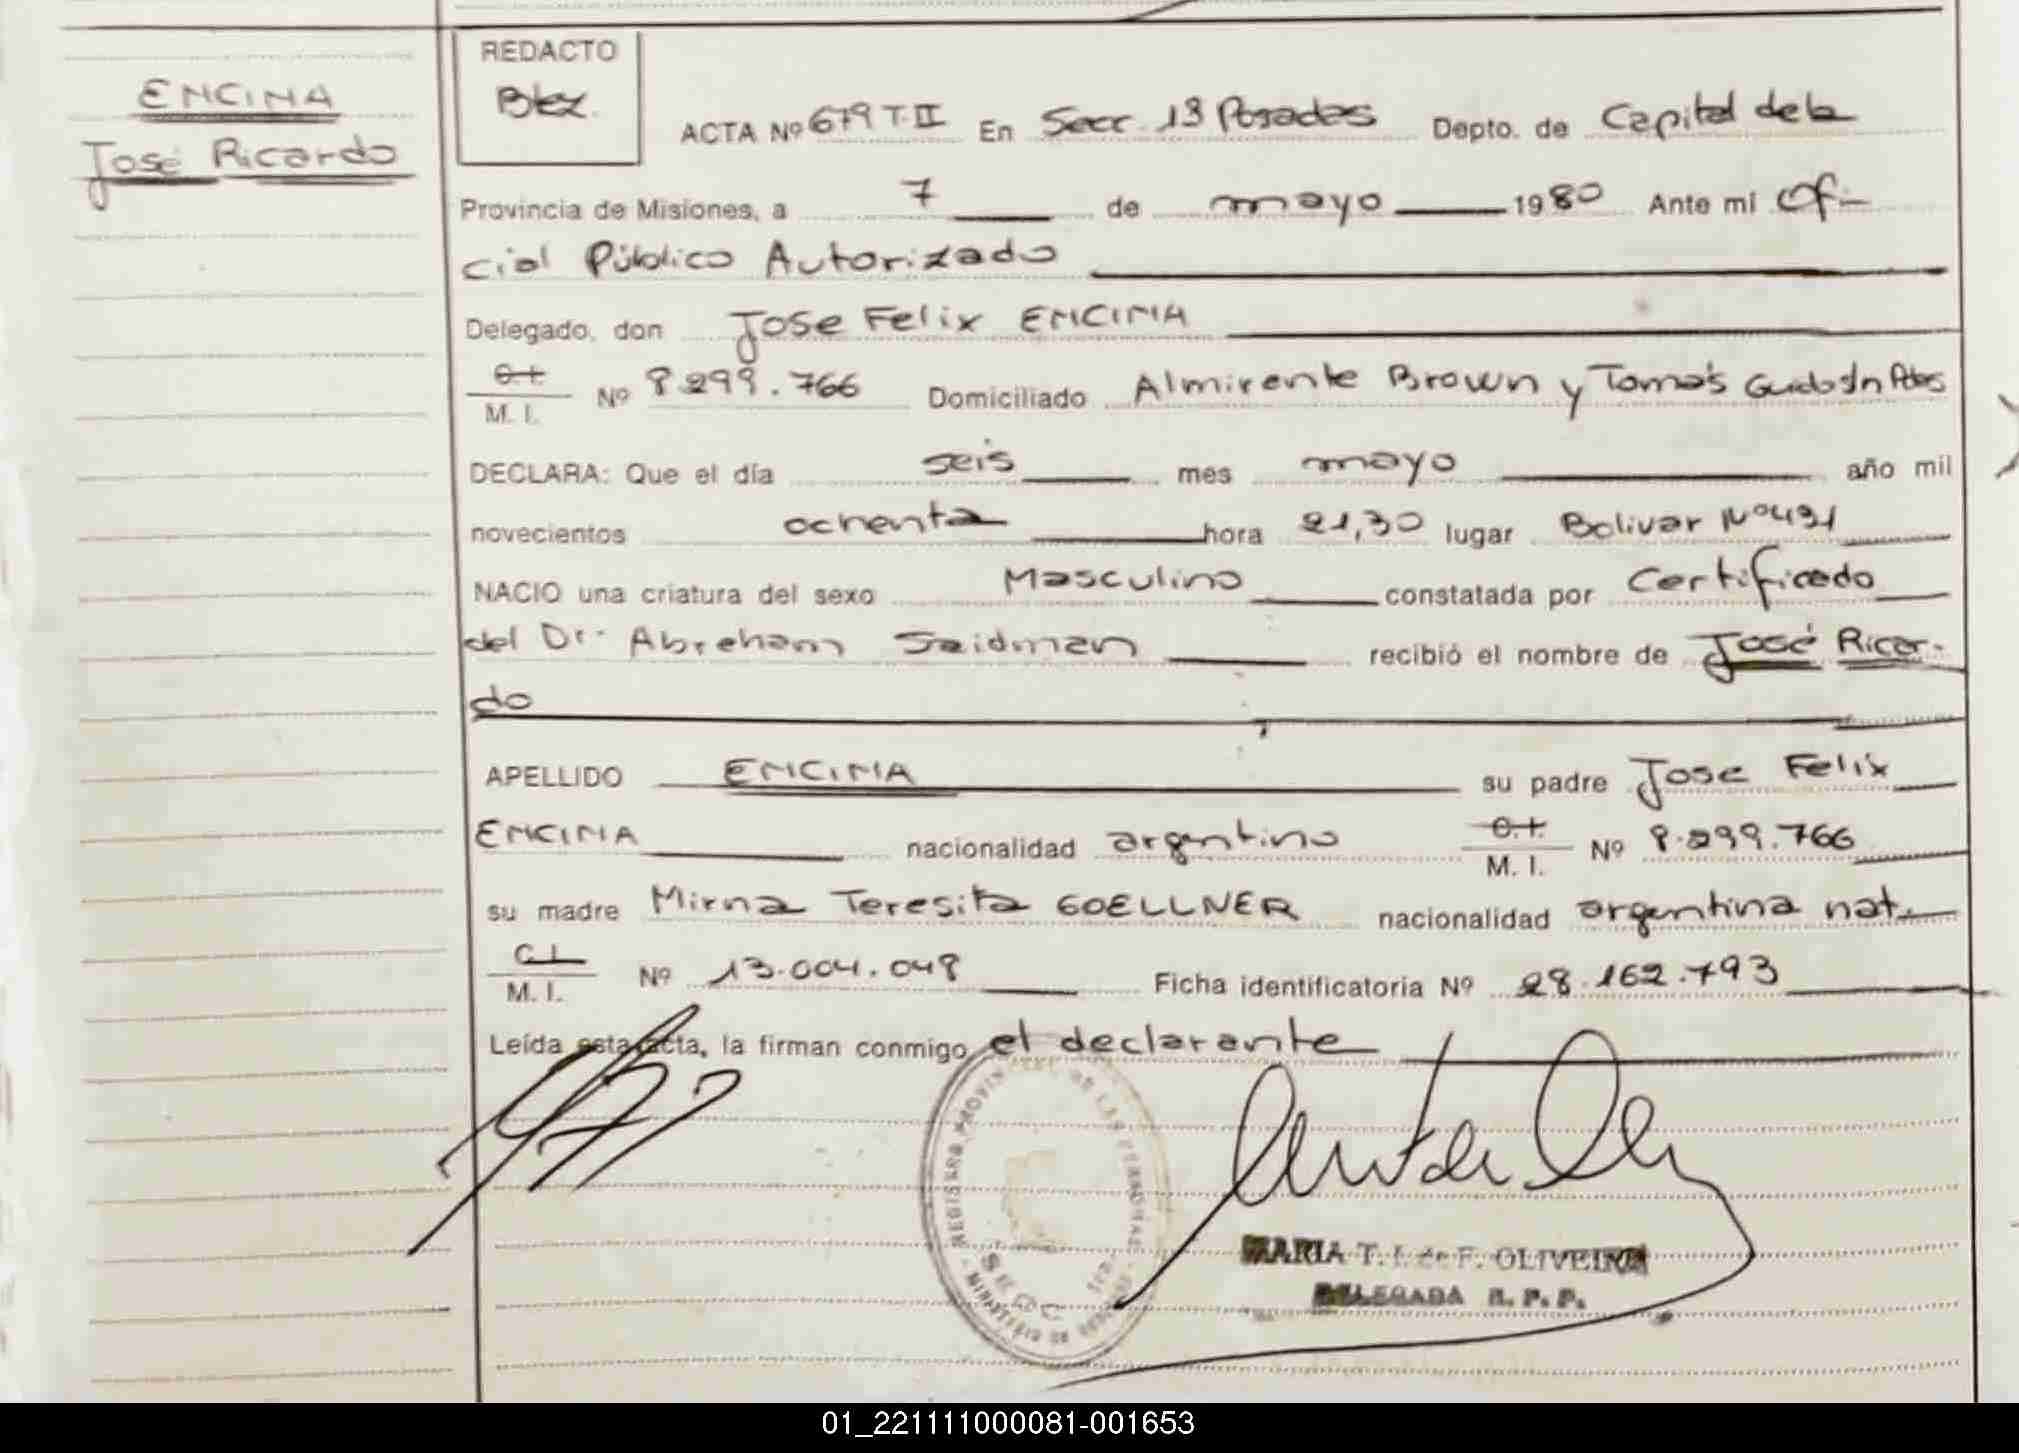 ENCINA
José Ricardo
REDACTO
ACTA Nº 679 T.II En Secc. 13 Posadas Depto. de Capital de la
Provincia de Misiones, a 7 de mayo 1980 Ante mi Ofi-
cial Público Autorizado
Delegado, don Jose Felix ENCINA
C.I.
M. I. Nº 8.299.766 Domiciliado Almirente Brown y Tomás Guido s/n Pdas
DECLARA: Que el día seis mes mayo año mil
novecientos ochenta hora 21,30 lugar Bolivar Nº 491
NACIO una criatura del sexo Masculino constatada por Certificado
del Dr. Abraham Saidman recibió el nombre de José Ricar-
do
APELLIDO ENCINA su padre Jose Felix
ENCINA nacionalidad argentino C.I.
M. I. Nº 8.299.766
su madre Mirna Teresita GOELLNER nacionalidad argentina nat.
C.I.
M. I. Nº 13.004.048 Ficha identificatoria Nº 28.162.793
Leída esta acta, la firman conmigo el declarante
REGISTRO PROVINCIAL DE LAS PERSONAS
SECC
MARIA T. I. de F. OLIVEIRA
DELEGADA R. P. P.
01_221111000081-001653